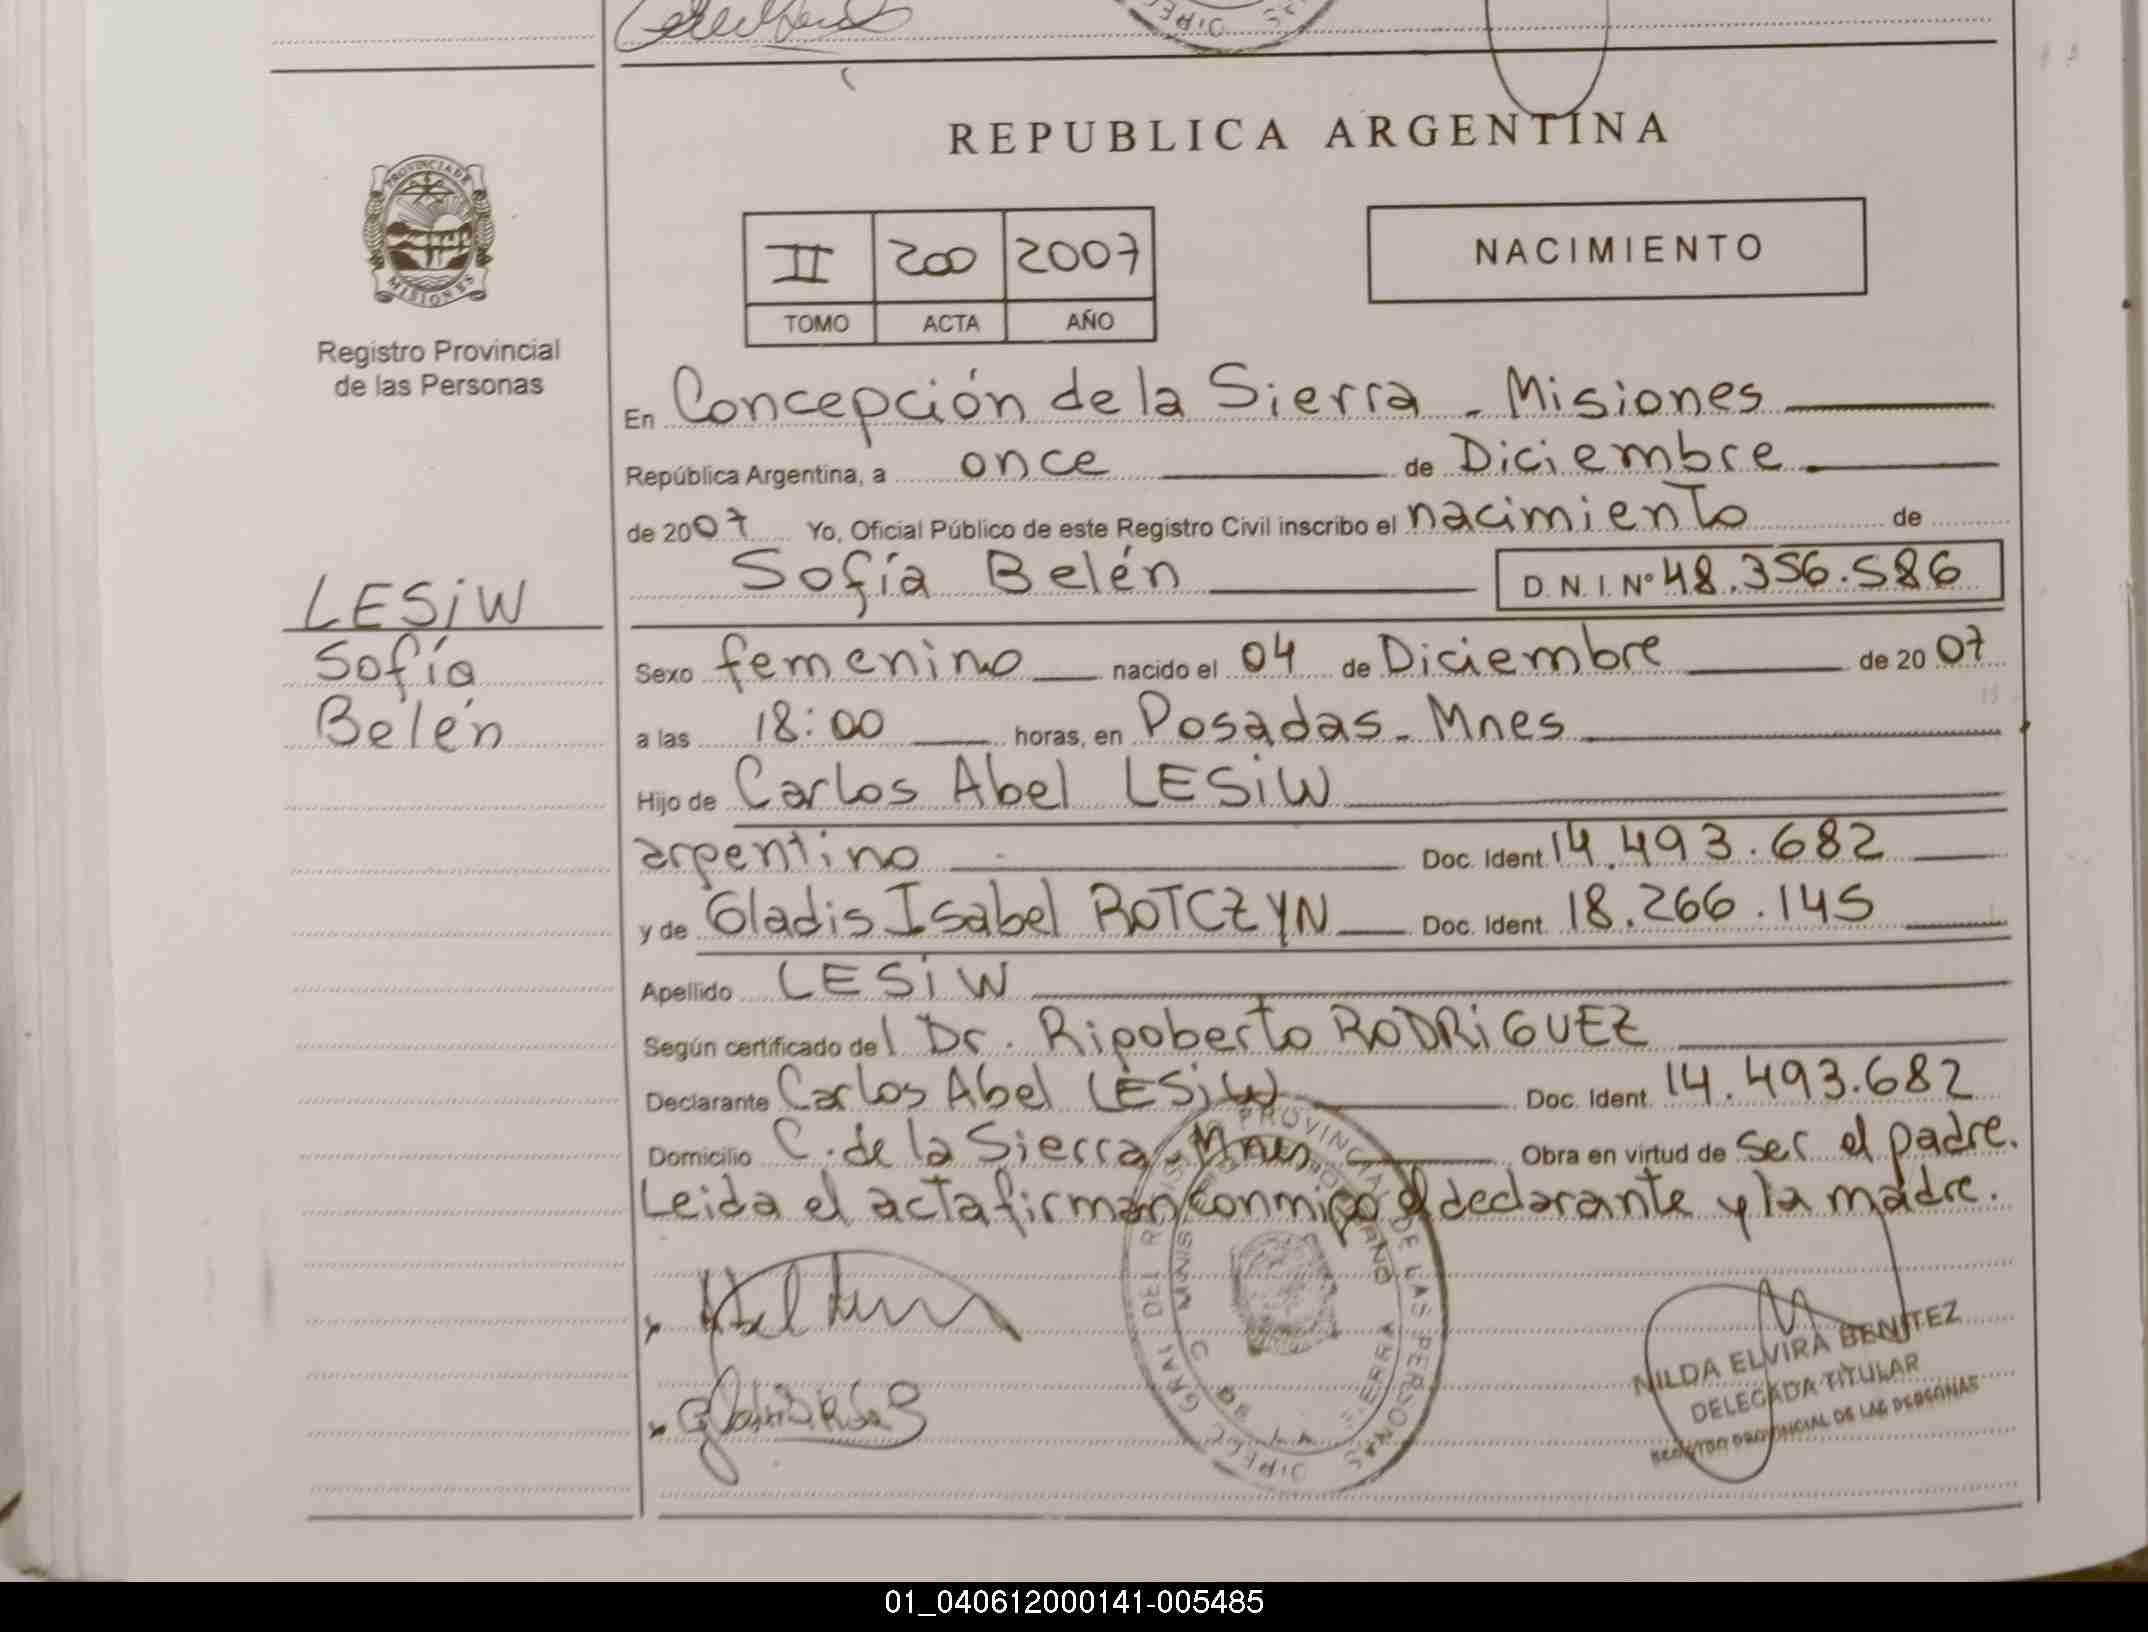 REPUBLICA ARGENTINA
PROVINCIA DE
MISIONES
Registro Provincial
de las Personas
II 200 2007
TOMO ACTA AÑO
NACIMIENTO
En Concepción de la Sierra - Misiones
República Argentina, a once de Diciembre
de 2007 Yo, Oficial Público de este Registro Civil inscribo el nacimiento de
Sofía Belén D.N.I. Nº 48.356.586
LESiW
Sofía
Belén
Sexo femenino nacido el 04 de Diciembre de 2007
a las 18:00 horas, en Posadas - Mnes
Hijo de Carlos Abel LESiW
argentino Doc. Ident. 14.493.682
y de Gladis Isabel ROTCZYN Doc. Ident. 18.266.145
Apellido LESiW
Según certificado del Dr. Rigoberto RODRiGUEZ
Declarante Carlos Abel LESiW Doc. Ident. 14.493.682
Domicilio C. de la Sierra - Mnes Obra en virtud de ser el padre.
Leida el acta firman conmigo el declarante y la madre.
NILDA ELVIRA BENITEZ
DELEGADA TITULAR
REGISTRO PROVINCIAL DE LAS PERSONAS
01_040612000141-005485